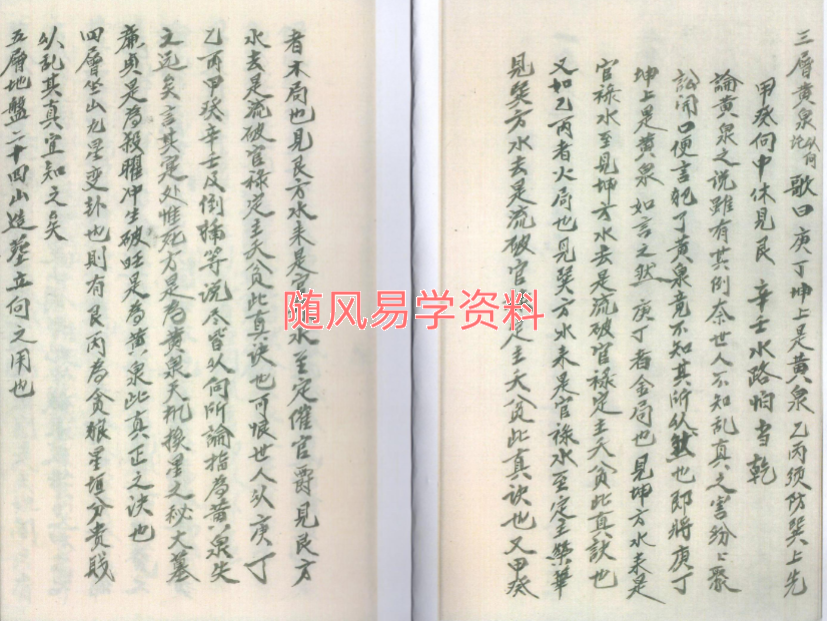 三層黃泉论从向歌曰庚丁坤上是黃泉乙丙須防巽上先
甲癸向中休見艮辛壬水路怕当乾
論黃泉之說雖有其例奈世人不知乱真之害纷纷聚
訟開口便言犯了黃泉竟不知其所以然也即將庚丁
坤上是黃泉如言之然庚丁者金局也見坤方水来是
官祿水至見坤方水去是流破官祿定主夭贫此真訣也
又如乙丙者火局也見巽方水来是官祿水至定主榮華
見巽方水去是流破官祿定主夭貧此真诀也又甲癸
者木局也見艮方水来是官祿水至定催官爵見艮方
水去是流破官祿定主夭貧此真诀也可恨世人以庚丁
乙丙甲癸辛壬及倒排等说尽皆从向所論指為黃泉失
之远矣言其定处惟死方是為黃泉天机换星之秘大墓
廉貞是為殺曜冲生破旺是為黃泉此真正之诀也
四層坐山九星变卦也則有艮丙為贪狼星垣分贵贱
以乱其真宜知之矣
五層地盤二十四山造塟立向之用也
随风易学资料